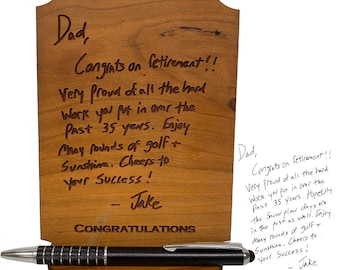 Dad,
Congrats on Retirement!!
Very proud of all the hard
Work you put in over the
Past 35 years. Enjoy
Many rounds of golf +
Sunshine. Cheers to
your Success!
- Jake
CONGRATULATIONS
Dad,
Congrats on Retirement!!
Very proud of all the hard
Work you put in over the
Past 35 years. Hopefully
the snow plow days are
in the past as well. Enjoy
Many rounds of golf +
Sunshine. Cheers to
your Success!
- Jake